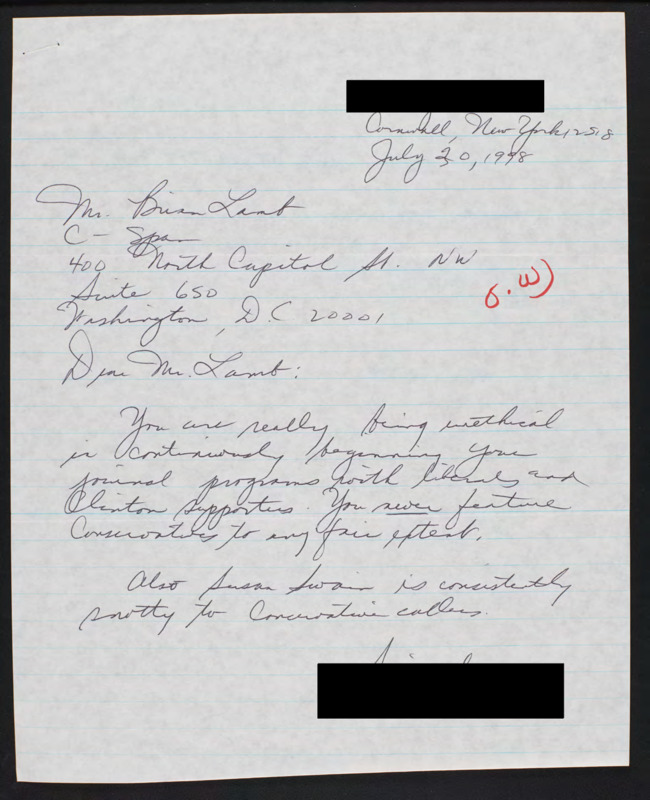 Cornwall, New York 12518
July 20, 1998
Mr. Brian Lamb
C-Span
400 North Capitol St. NW
Suite 650
Washington, D.C 20001
Dear Mr. Lamb:
You are really being unethical
in continuously beginning your
journal programs with liberals and
Clinton supporters. You never feature
Conservatives to any fair extent.
Also Susan Swain is consistently
snotty to Conservative callers.